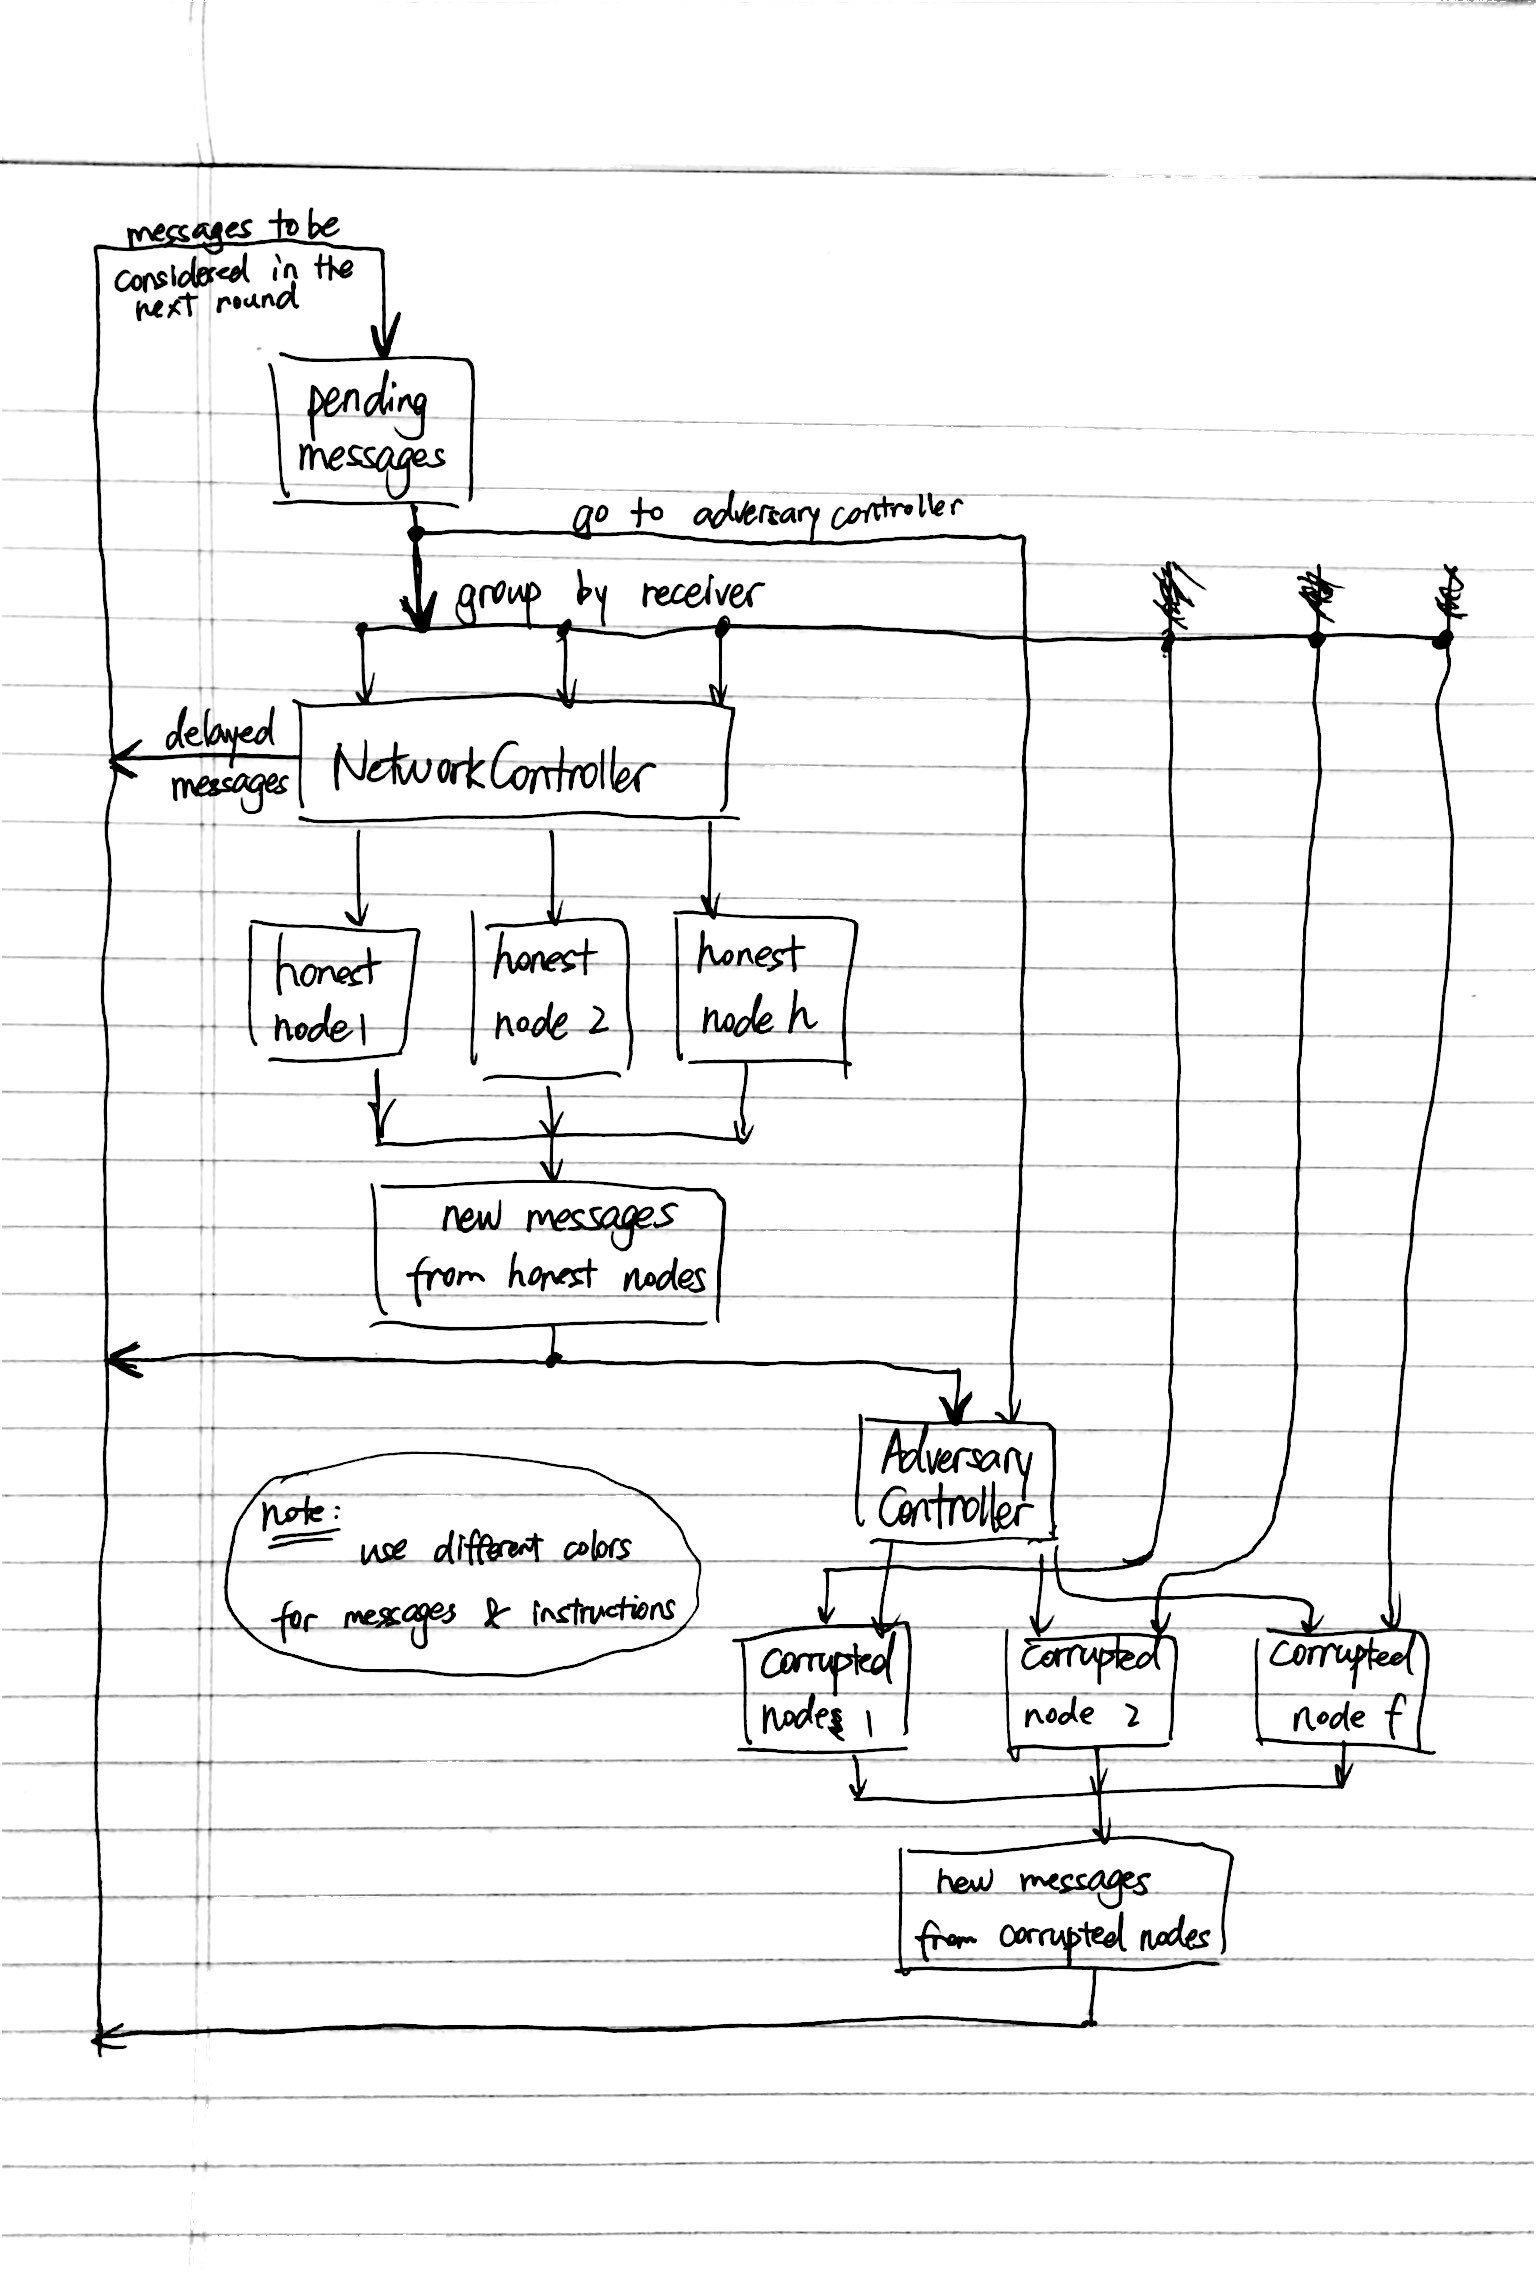 messages to be
considered in the
next round
pending
messages
go to adversary controller
group by receiver
delayed
messages
NetworkController
honest
node 1
honest
node 2
honest
node h
new messages
from honest nodes
Adversary
Controller
note:
use different colors
for messages & instructions
Corrupted
nodes 1
Corrupted
node 2
Corrupted
node f
new messages
from corrupted nodes